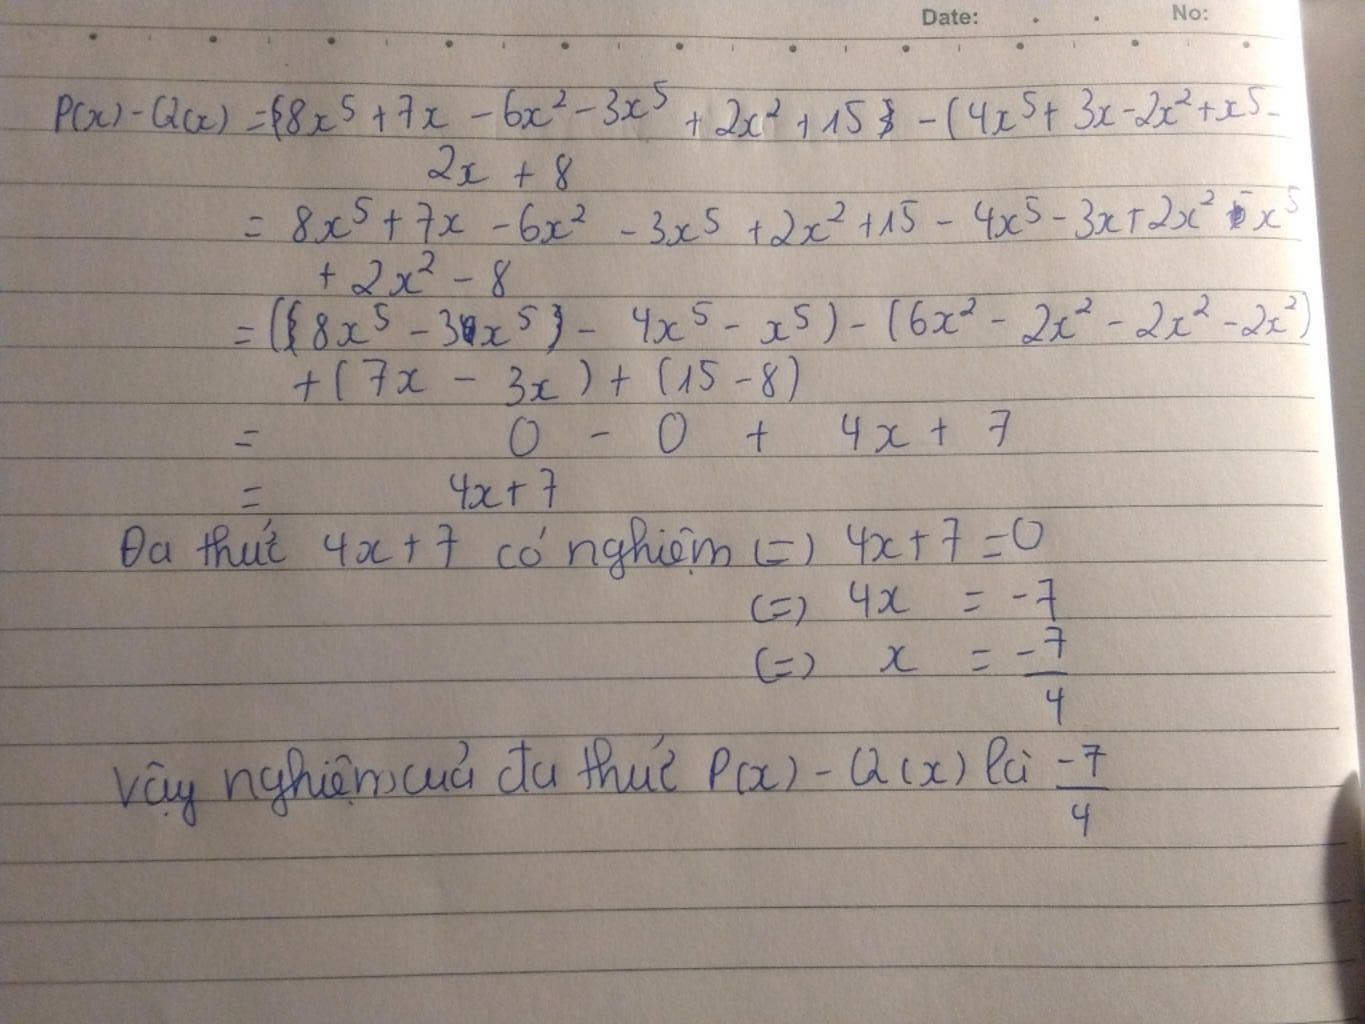 Date: No:
P(x) - Q(x) = {8x⁵ + 7x - 6x² - 3x⁵ + 2x² + 15} - (4x⁵ + 3x - 2x² + x⁵ -
2x + 8
= 8x⁵ + 7x - 6x² - 3x⁵ + 2x² + 15 - 4x⁵ - 3x + 2x² - x⁵
+ 2x² - 8
= ({8x⁵ - 3x⁵} - 4x⁵ - x⁵) - (6x² - 2x² - 2x² - 2x²)
+ (7x - 3x) + (15 - 8)
= 0 - 0 + 4x + 7
= 4x + 7
Đa thức 4x + 7 có nghiệm (=) 4x + 7 = 0
(=) 4x = -7
(=) x = -7/4
Vậy nghiệm của đa thức P(x) - Q(x) là -7/4